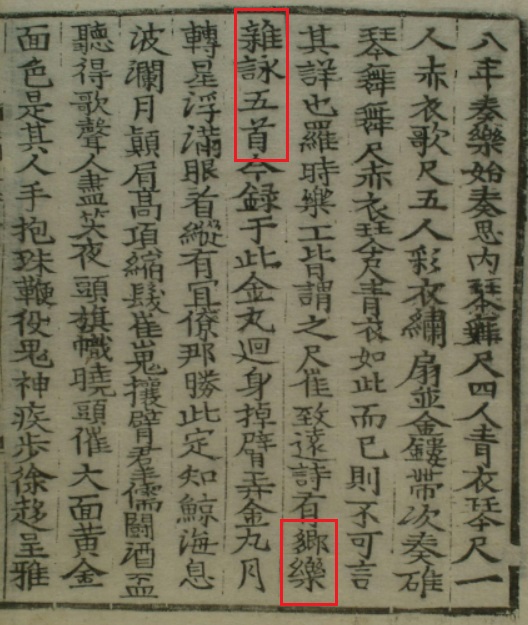 八年奏樂始奏思內琴舞尺四人青衣琴尺一
人赤衣歌尺五人彩衣繡扇並金鏤帶次奏碓
琴舞舞尺赤衣琴舍青衣如此而已則不可言
其詳也羅時樂工皆謂之尺崔致遠詩有鄕樂
雜詠五首今錄于此金丸廻身掉臂弄金丸月
轉星浮滿眼看縱有冝僚那勝此定知鯨海息
波瀾月顚肩高項縮髮崔嵬攘臂羣儒鬪酒盃
聽得歌聲人盡笑夜頭旗幟曉頭催大面黃金
面色是其人手抱珠鞭役鬼神疾步徐趍呈雅